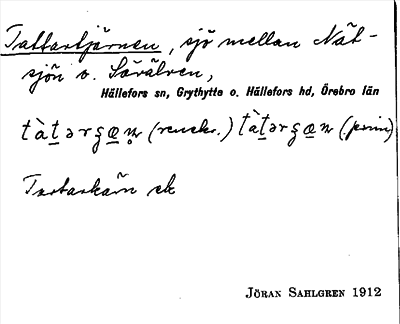 Tattartjärnen, sjö mellan Nät-
sjön o. Sävälven,
Hällefors sn, Grythytte o. Hällefors hd, Örebro län
tàtərʂæn̥ (renskr.) tàtərʂæn (prim)
Tartarkärn ek
JÖRAN SAHLGREN 1912